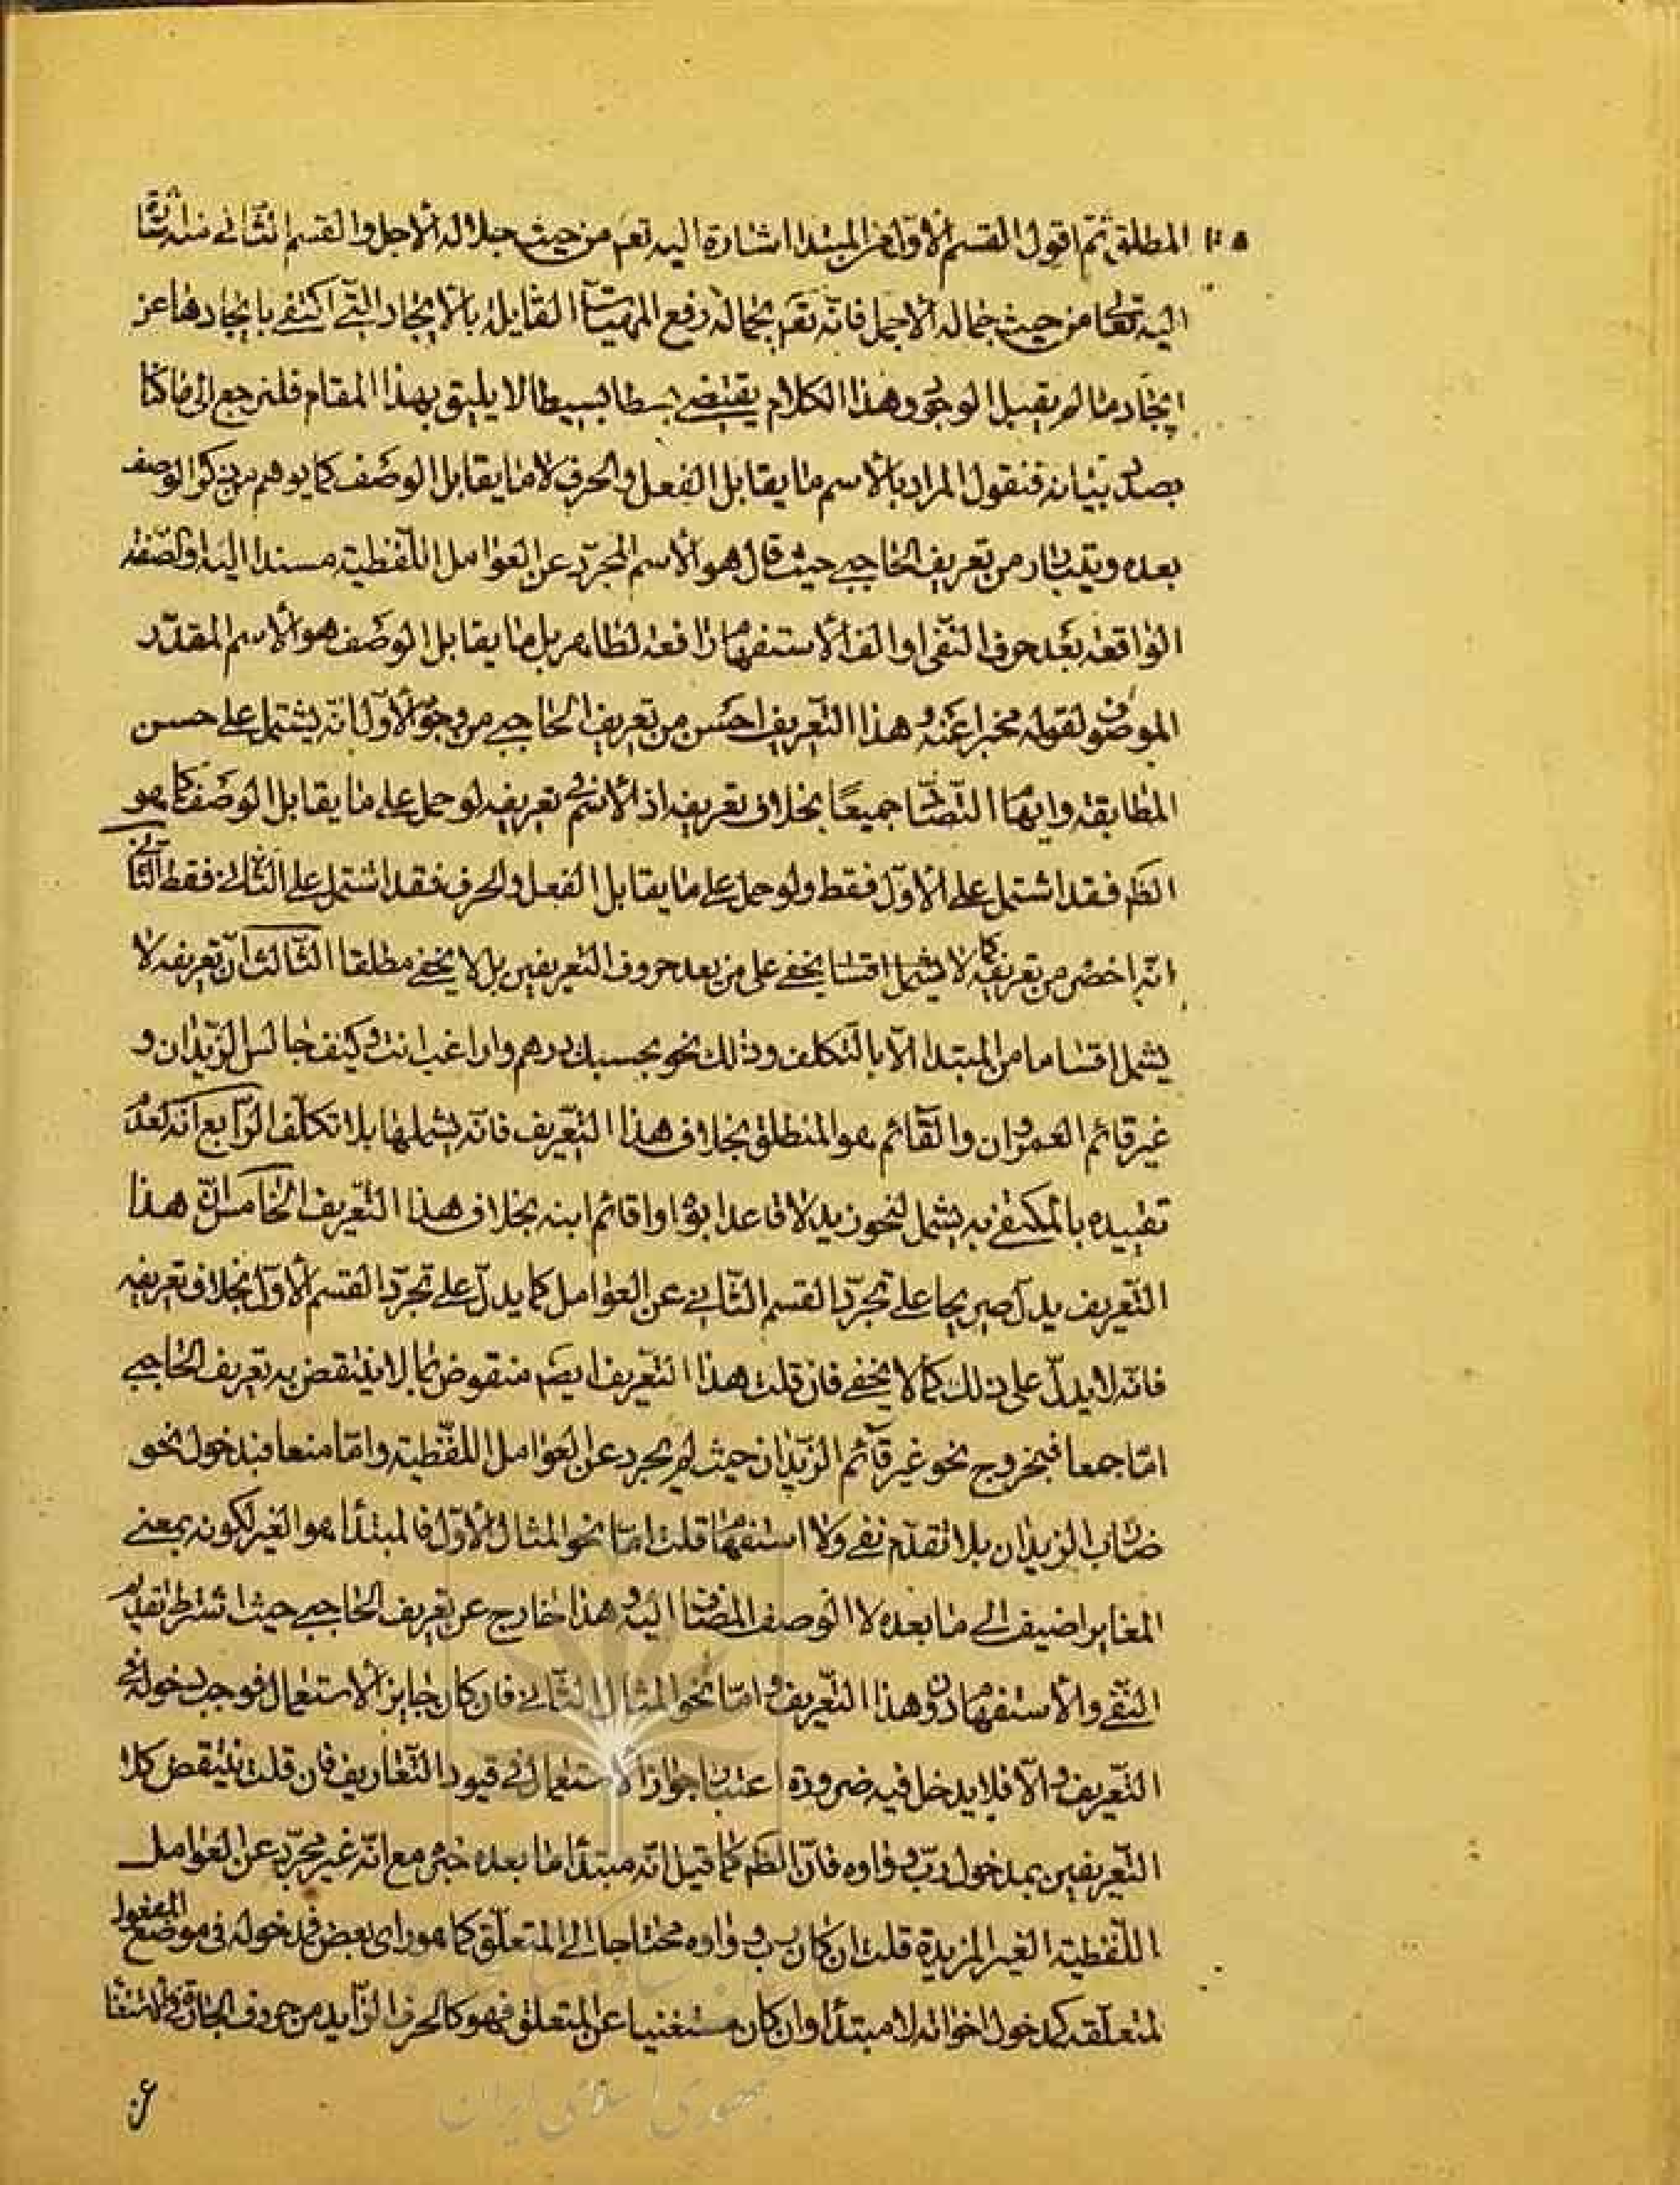 المطلق ثم اقول القسم الاول من المبتدا اشارة اليه تعم من حيث جلاله الاجل والقسم الثاني منه
اليه تعا من حيث جماله الاجمل فانه تعم بجماله رفع المهيات القابلة بالايجاد التي اكتفى بايجادها عن
ايجاد ما لم يقبل الوجود وهذا الكلام يقتضي بسطا بسيطا لا يليق بهذا المقام فلنرجع الى ما كنا
بصدد بيانه فنقول المراد بالاسم ما يقابل الفعل والحرف لا ما يقابل الوصف كما يوهم من ذكر الوصف
بعده ويتبادر من تعريف الحاجبي حيث قال هو الاسم المجرد عن العوامل اللفظية مسندا اليه او الصفة
الواقعة بعد حرف النفي او الف الاستفهام رافعة لظاهر بل ما يقابل الوصف هو الاسم المقدر
الموصوف لقوله مخبرا عنه وهذا التعريف احسن من تعريف الحاجبي من وجوه الاول انه يشتمل على حسن
المطابقة وايهام التضاد جميعا بخلاف تعريفه اذ الاسم في تعريفه لو حمل على ما يقابل الوصف كما هو
الظم فقد اشتمل على الاول فقط ولو حمل على ما يقابل الفعل والحرف فقد اشتمل على الثاني فقط الثاني
انه اخصر من تعريفه كما لا يخفى على من يعد حروف التعريفين بل لا يخفى مطلقا الثالث ان تعريفه لا
يشمل اقساما من المبتدا الا بالتكلف وذلك نحو بحسبك درهم واراغب انت وكيف جالس الزيدان و
غير قائم العمروان والقائم هو المنطلق بخلاف هذا التعريف فانه يشملها بلا تكلف الرابع انه لعدم
تقييده بالمكتفى به يشمل لنحو زيد لا قاعد ابوه او اقائم ابنه بخلاف هذا التعريف الخامس ان هذا
التعريف يدل صريحا على تجرد القسم الثاني عن العوامل كما يدل على تجرد القسم الاول بخلاف تعريفه
فانه لا يدل على ذلك كما لا يخفى فان قلت هذا التعريف ايضم منقوض بما لا ينتقض به تعريف الحاجبي
اما جمعا فبخروج نحو غير قائم الزيدان حيث لم يجرد عن العوامل اللفظية واما منعا فبدخول نحو
ضارب الزيدان بلا تقدم نفي ولا استفهام قلت اما نحو المثال الاول فالمبتدا هو الغير لكونه بمعنى
المغاير اضيف الى ما بعده لا الوصف المضاف اليه وهذا خارج عن تعريف الحاجبي حيث اشترط تقديم
النفي والاستفهام دون هذا التعريف واما نحو المثال الثاني فان كان جايز الاستعمال فوجب دخوله في
التعريف والا فلا يدخل فيه ضرورة اعتبار جواز الاستعمال في قيود التعاريف فان قلت ينتقض كلا
التعريفين بمدخول رب وواوه فان الظم كما قيل انه مبتدا ما بعده خبره مع انه غير مجرد عن العوامل
اللفظية الغير المزيدة قلت ان كان رب وواوه محتاجا الى المتعلق كما هو راى بعض فمدخوله في موضع المفعول
لمتعلقه كمدخول اخواته لا مبتدا وان كان مستغنيا عن المتعلق فهو كالحرف الزايد من حروف الجارة في